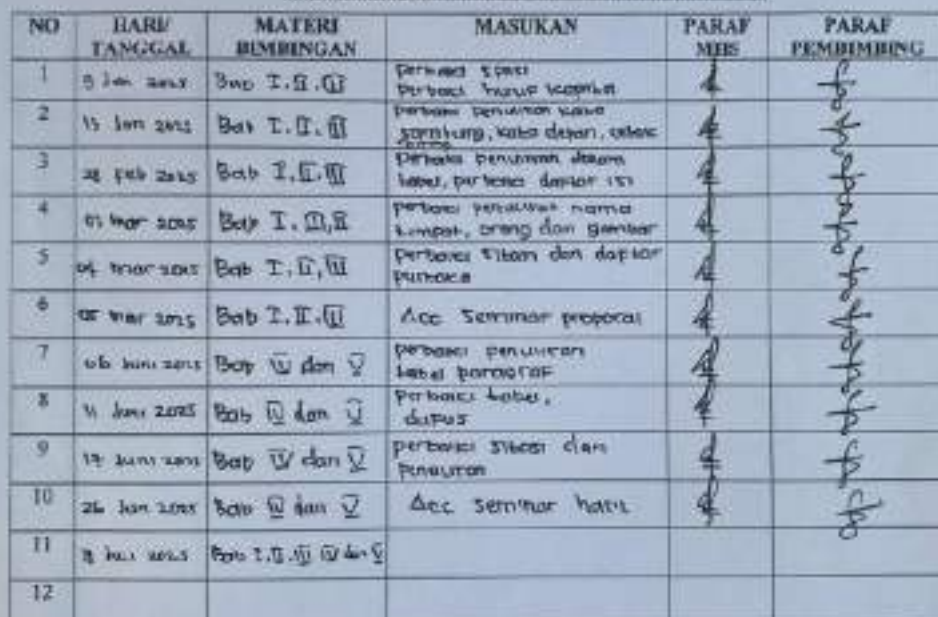 NO HARI/ TANGGAL MATERI BIMBINGAN MASUKAN PARAF MHS PARAF PEMBIMBING
1 9 Jan 2025 Bab I, II, III perbaiki spasi
perbaiki huruf kapital
2 15 Jan 2025 Bab I, II, III perbaiki penulisan kata
sambung, kata depan,
3 28 Feb 2025 Bab I, II, III perbaiki penulisan dalam
tabel, perbaiki daptar isi
4 03 Mar 2025 Bab I, II, III perbaiki penulisan nama
tempat, orang dan gambar
5 04 mar 2025 Bab I, II, III perbaiki sitasi dan daptar
pustaka
6 05 mar 2025 Bab I, II, III Acc Seminar proposal
7 06 Juni 2025 Bab IV dan V perbaiki penulisan
tabel paragraf
8 11 Juni 2025 Bab IV dan V perbaiki tabel,
dafpus
9 17 Juni 2025 Bab IV dan V perbaiki sitasi dan
penulisan
10 26 Jun 2025 Bab IV dan V Acc Seminar hasil
11 2025 Bab I, II, III, IV dan V
12